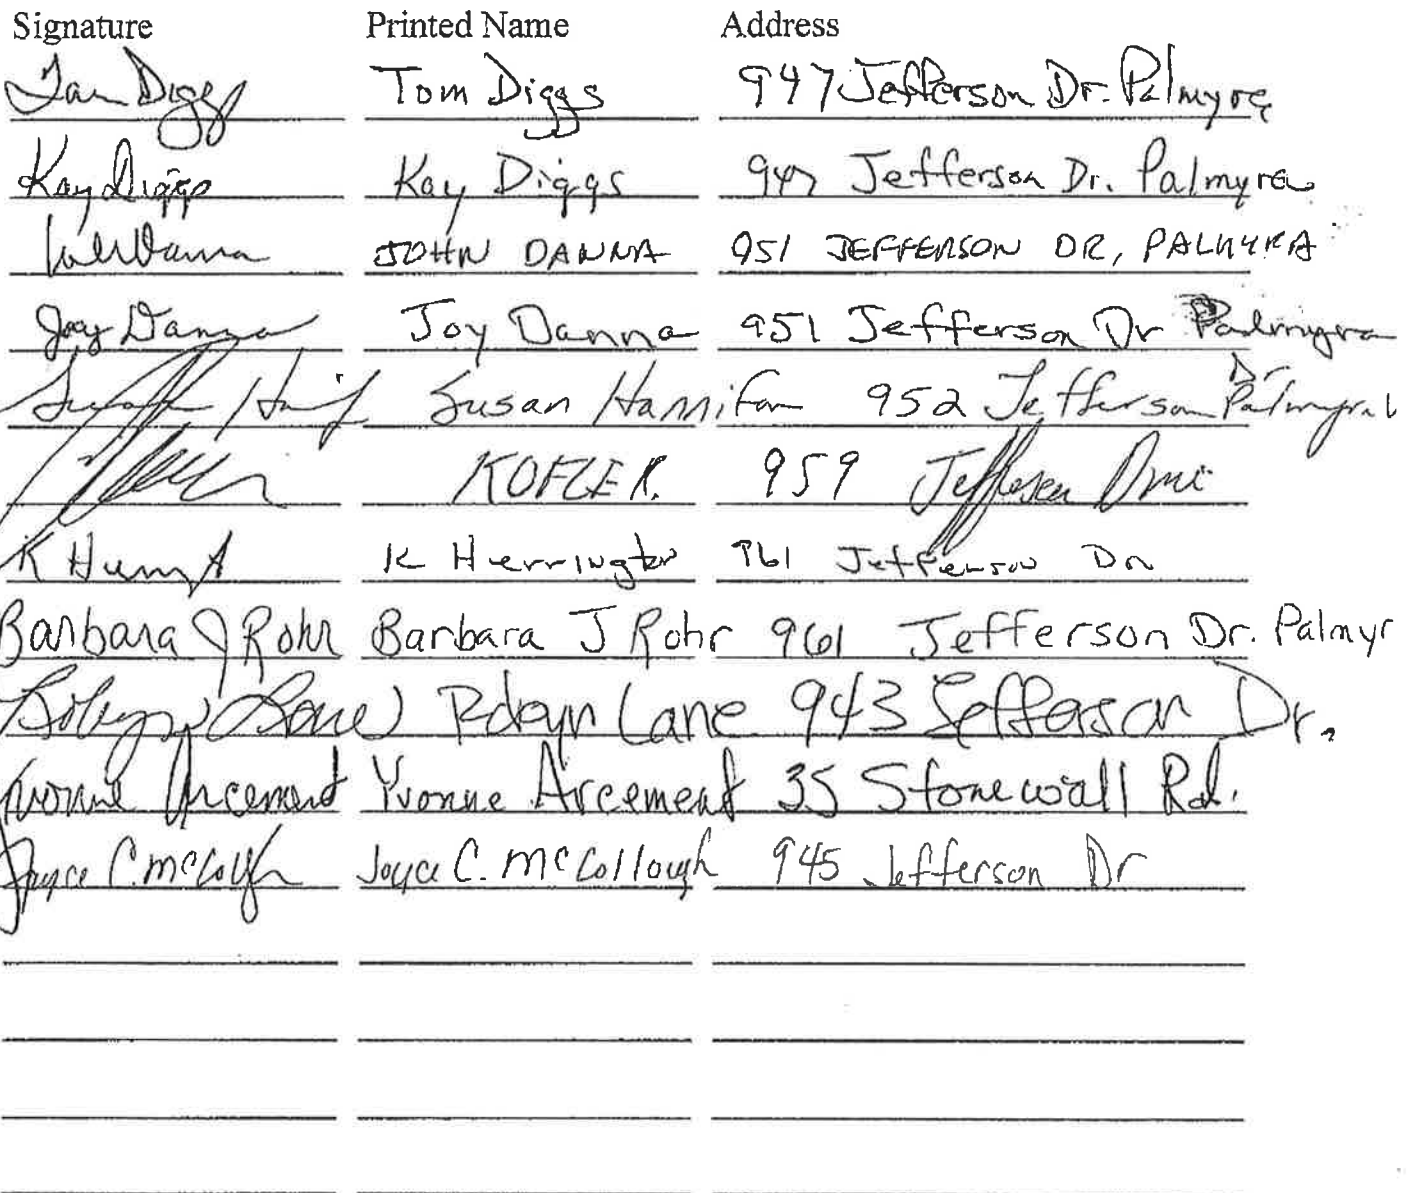 Signature Printed Name Address
Tom Diggs Tom Diggs 947 Jefferson Dr. Palmyra
Kay Diggs Kay Diggs 947 Jefferson Dr. Palmyra
JOHN DANNA 951 JEFFERSON DR, PALMYRA
Joy Danna Joy Danna 951 Jefferson Dr Palmyra
Susan Hannifan 952 Jefferson Dr Palmyra
959 Jefferson Drive
K Herrington 961 Jefferson Dr
Barbara J Rohr Barbara J Rohr 961 Jefferson Dr. Palmyr
Robyn Lane Robyn Lane 943 Jefferson Dr.
Yvonne Arcement Yvonne Arcement 35 Stonewall Rd.
Joyce C. McCollough Joyce C. McCollough 945 Jefferson Dr